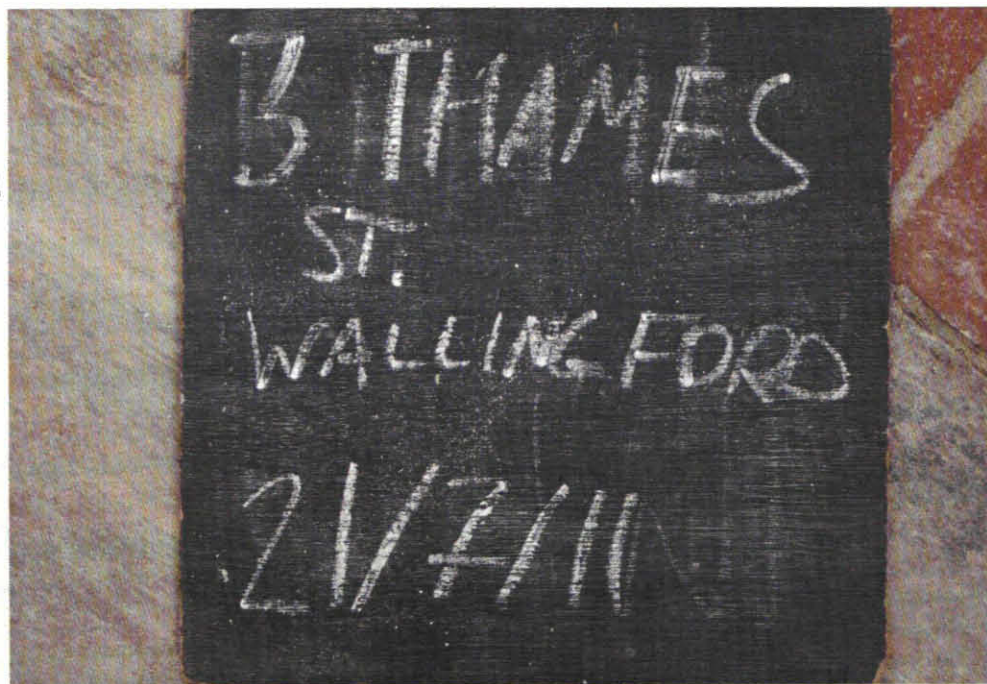 13 THAMES
ST.
WALLINGFORD
21/7/11